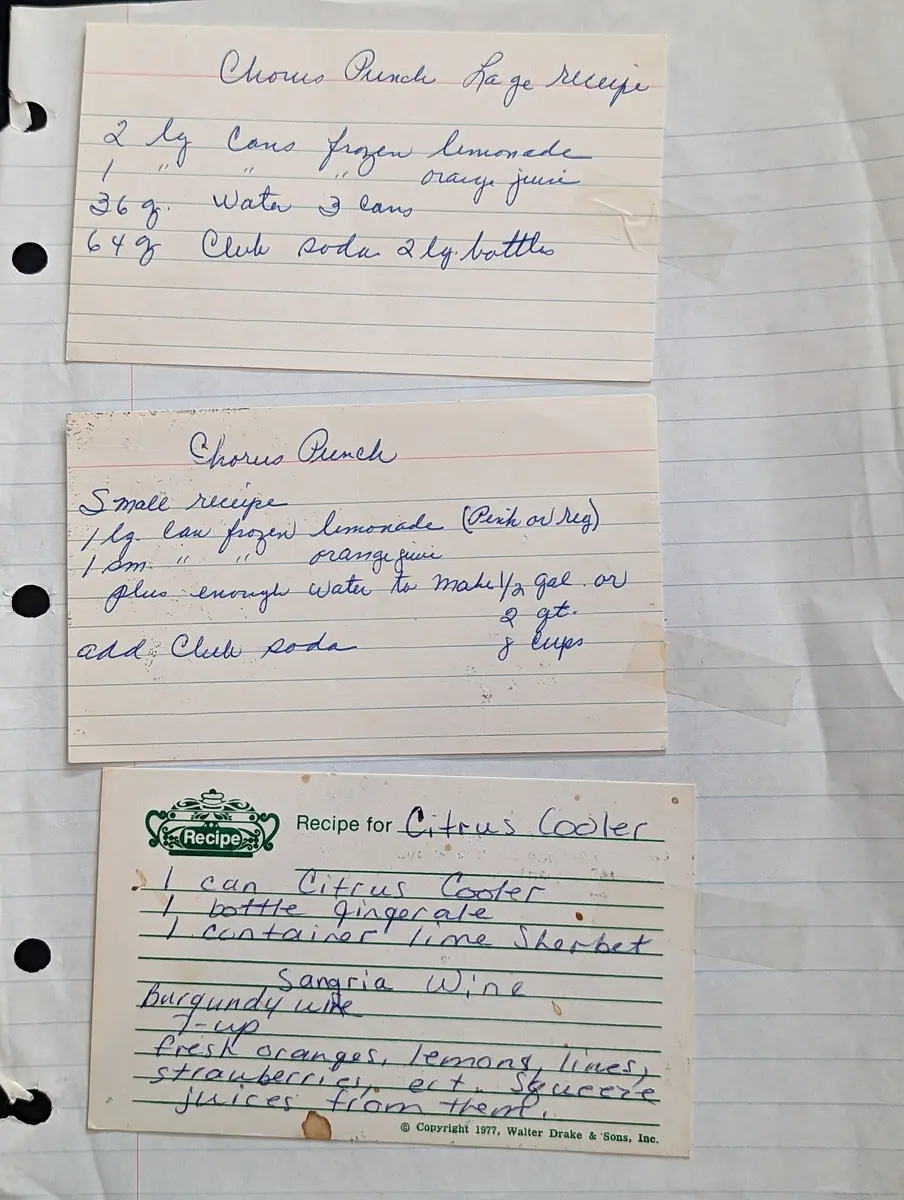 Chorus Punch La ge receipe
2 lg Cans frozen lemonade
1 " " " orange juice
36 oz. Water 3 Cans
64 oz Club soda 2 lg. bottles
Chorus Punch
Small receipe
1 lg. Can frozen lemonade (Pink or reg)
1 sm. " " orange juice
plus enough water to make 1/2 gal. or
2 qt.
8 cups
add Club soda
Recipe
Recipe for Citrus Cooler
1 can Citrus Cooler
1 bottle gingerale
1 container lime Sherbet
Sangria Wine
Burgundy wine
7-up
fresh oranges, lemons, limes,
strawberries, ect. Squeeze
juices from them.
© Copyright 1977, Walter Drake & Sons, Inc.